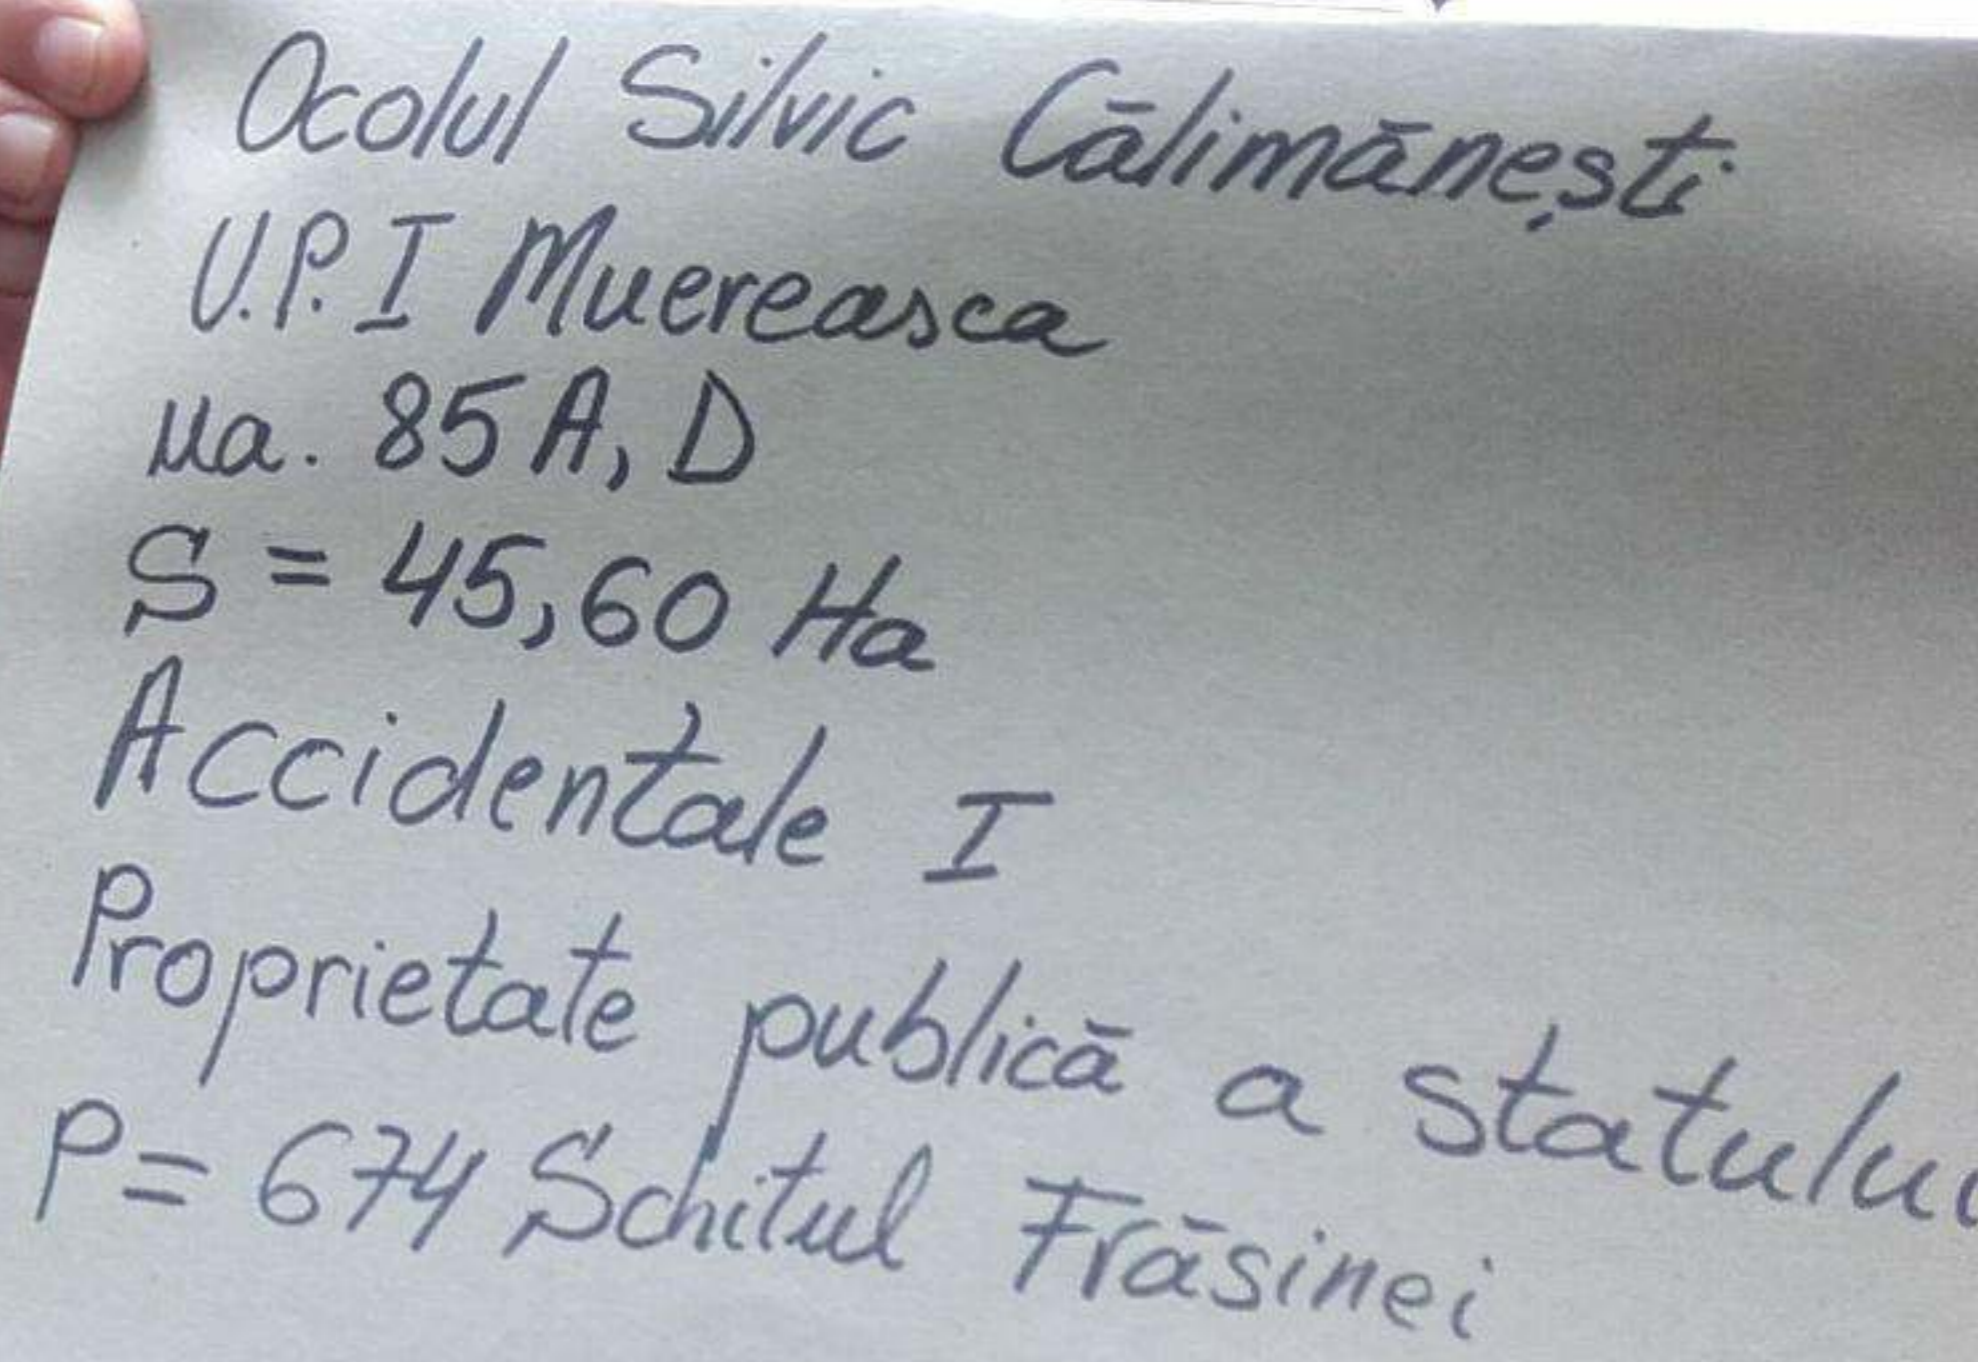 Ocolul Silvic Călimănești
U.P. I Muereasca
ua. 85 A, D
S = 45,60 Ha
Accidentale I
Proprietate publică a statului
P= 674 Schitul Frăsinei